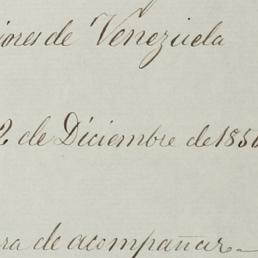 iores de Venezuela
2 de Diciembre de 185
ra de acompañar